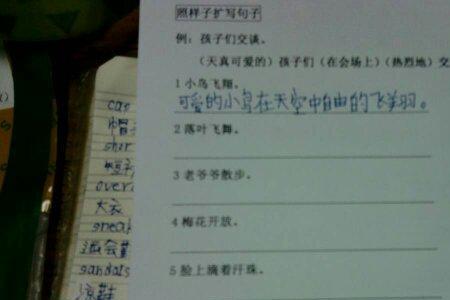 照样子扩写句子
例：孩子们交谈。
（天真可爱的）孩子们（在会场上）（热烈地）交
1 小鸟飞翔。
可爱的小鸟在天空中自由的飞翔。
2 落叶飞舞。
3 老爷爷散步。
4 梅花开放。
5 脸上滴着汗珠。
cas
帽
shor
短裤
over
大衣
sneak
sandals
凉鞋